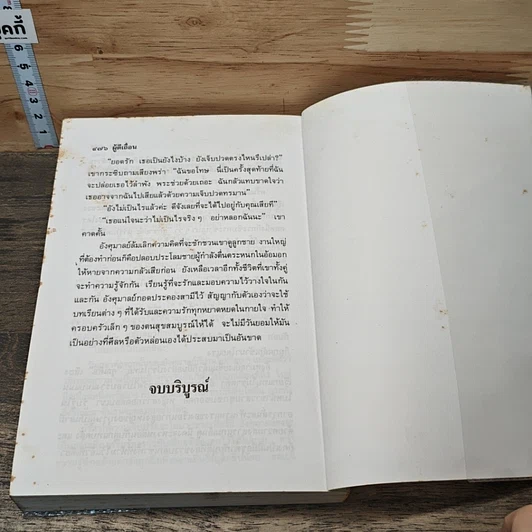 ๔๗๖ ผู้ดีเถื่อน
"ยอดรัก เธอเป็นยังไงบ้าง ยังเจ็บปวดตรงไหนรึเปล่า?"
เขากระซิบถามเสียงพร่า "ฉันขอโทษ นี่เป็นครั้งสุดท้ายที่ฉัน
จะปล่อยเธอไว้ลำพัง พระช่วยด้วยเถอะ ฉันกลัวแทบขาดใจว่า
เธออาจจากฉันไปเสียแล้วด้วยความเจ็บปวดทรมาน"
"ยังไม่เป็นไรแล้วค่ะ ดีจังเลยที่จะได้ไปอยู่กับคุณเสียที"
"เธอแน่ใจนะว่าไม่เป็นไรจริง ๆ อย่าหลอกฉันนะ" เขา
คาดคั้น
อังศุมาลย์ล้มเลิกความคิดที่จะชักชวนเขาดูลูกชาย งานใหญ่
ที่ต้องทำก่อนก็คือปลอบประโลมชายผู้กำลังตื่นตระหนกในอ้อมอก
ให้หายจากความกลัวเสียก่อน ยังเหลือเวลาอีกทั้งชีวิตที่เขาทั้งคู่
จะทำความรู้จักกัน เรียนรู้ที่จะรักและมอบความไว้วางใจในกัน
และกัน อังศุมาลย์กอดประคองสามีไว้ สัญญากับตัวเองว่าจะใช้
บทเรียนต่าง ๆ ที่ได้รับและความรักทุกหยาดหยดในกายใจ ทำให้
ครอบครัวเล็ก ๆ ของตนสุขสมบูรณ์ให้ได้ จะไม่มีวันยอมให้มัน
เป็นอย่างที่ศีลหรือตัวหล่อนเองได้ประสบมาเป็นอันขาด
จบบริบูรณ์
6
5
4
3
2
1